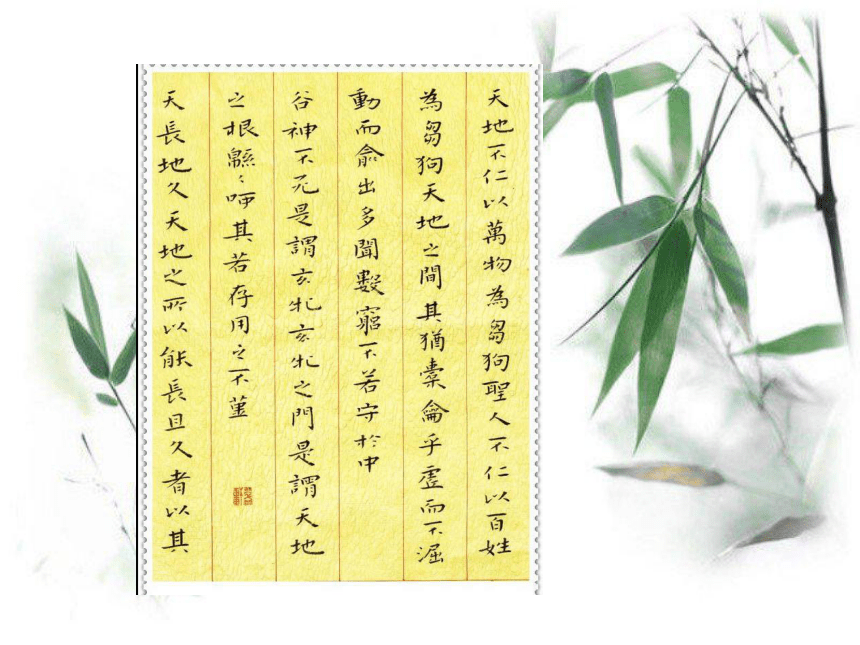 天地不仁以萬物為芻狗聖人不仁以百姓
為芻狗天地之間其猶橐龠乎虛而不淈
動而俞出多聞數窮不若守於中
谷神不死是謂玄牝玄牝之門是謂天地
之根緜〻呵其若存用之不堇
天長地久天地之所以能長且久者以其